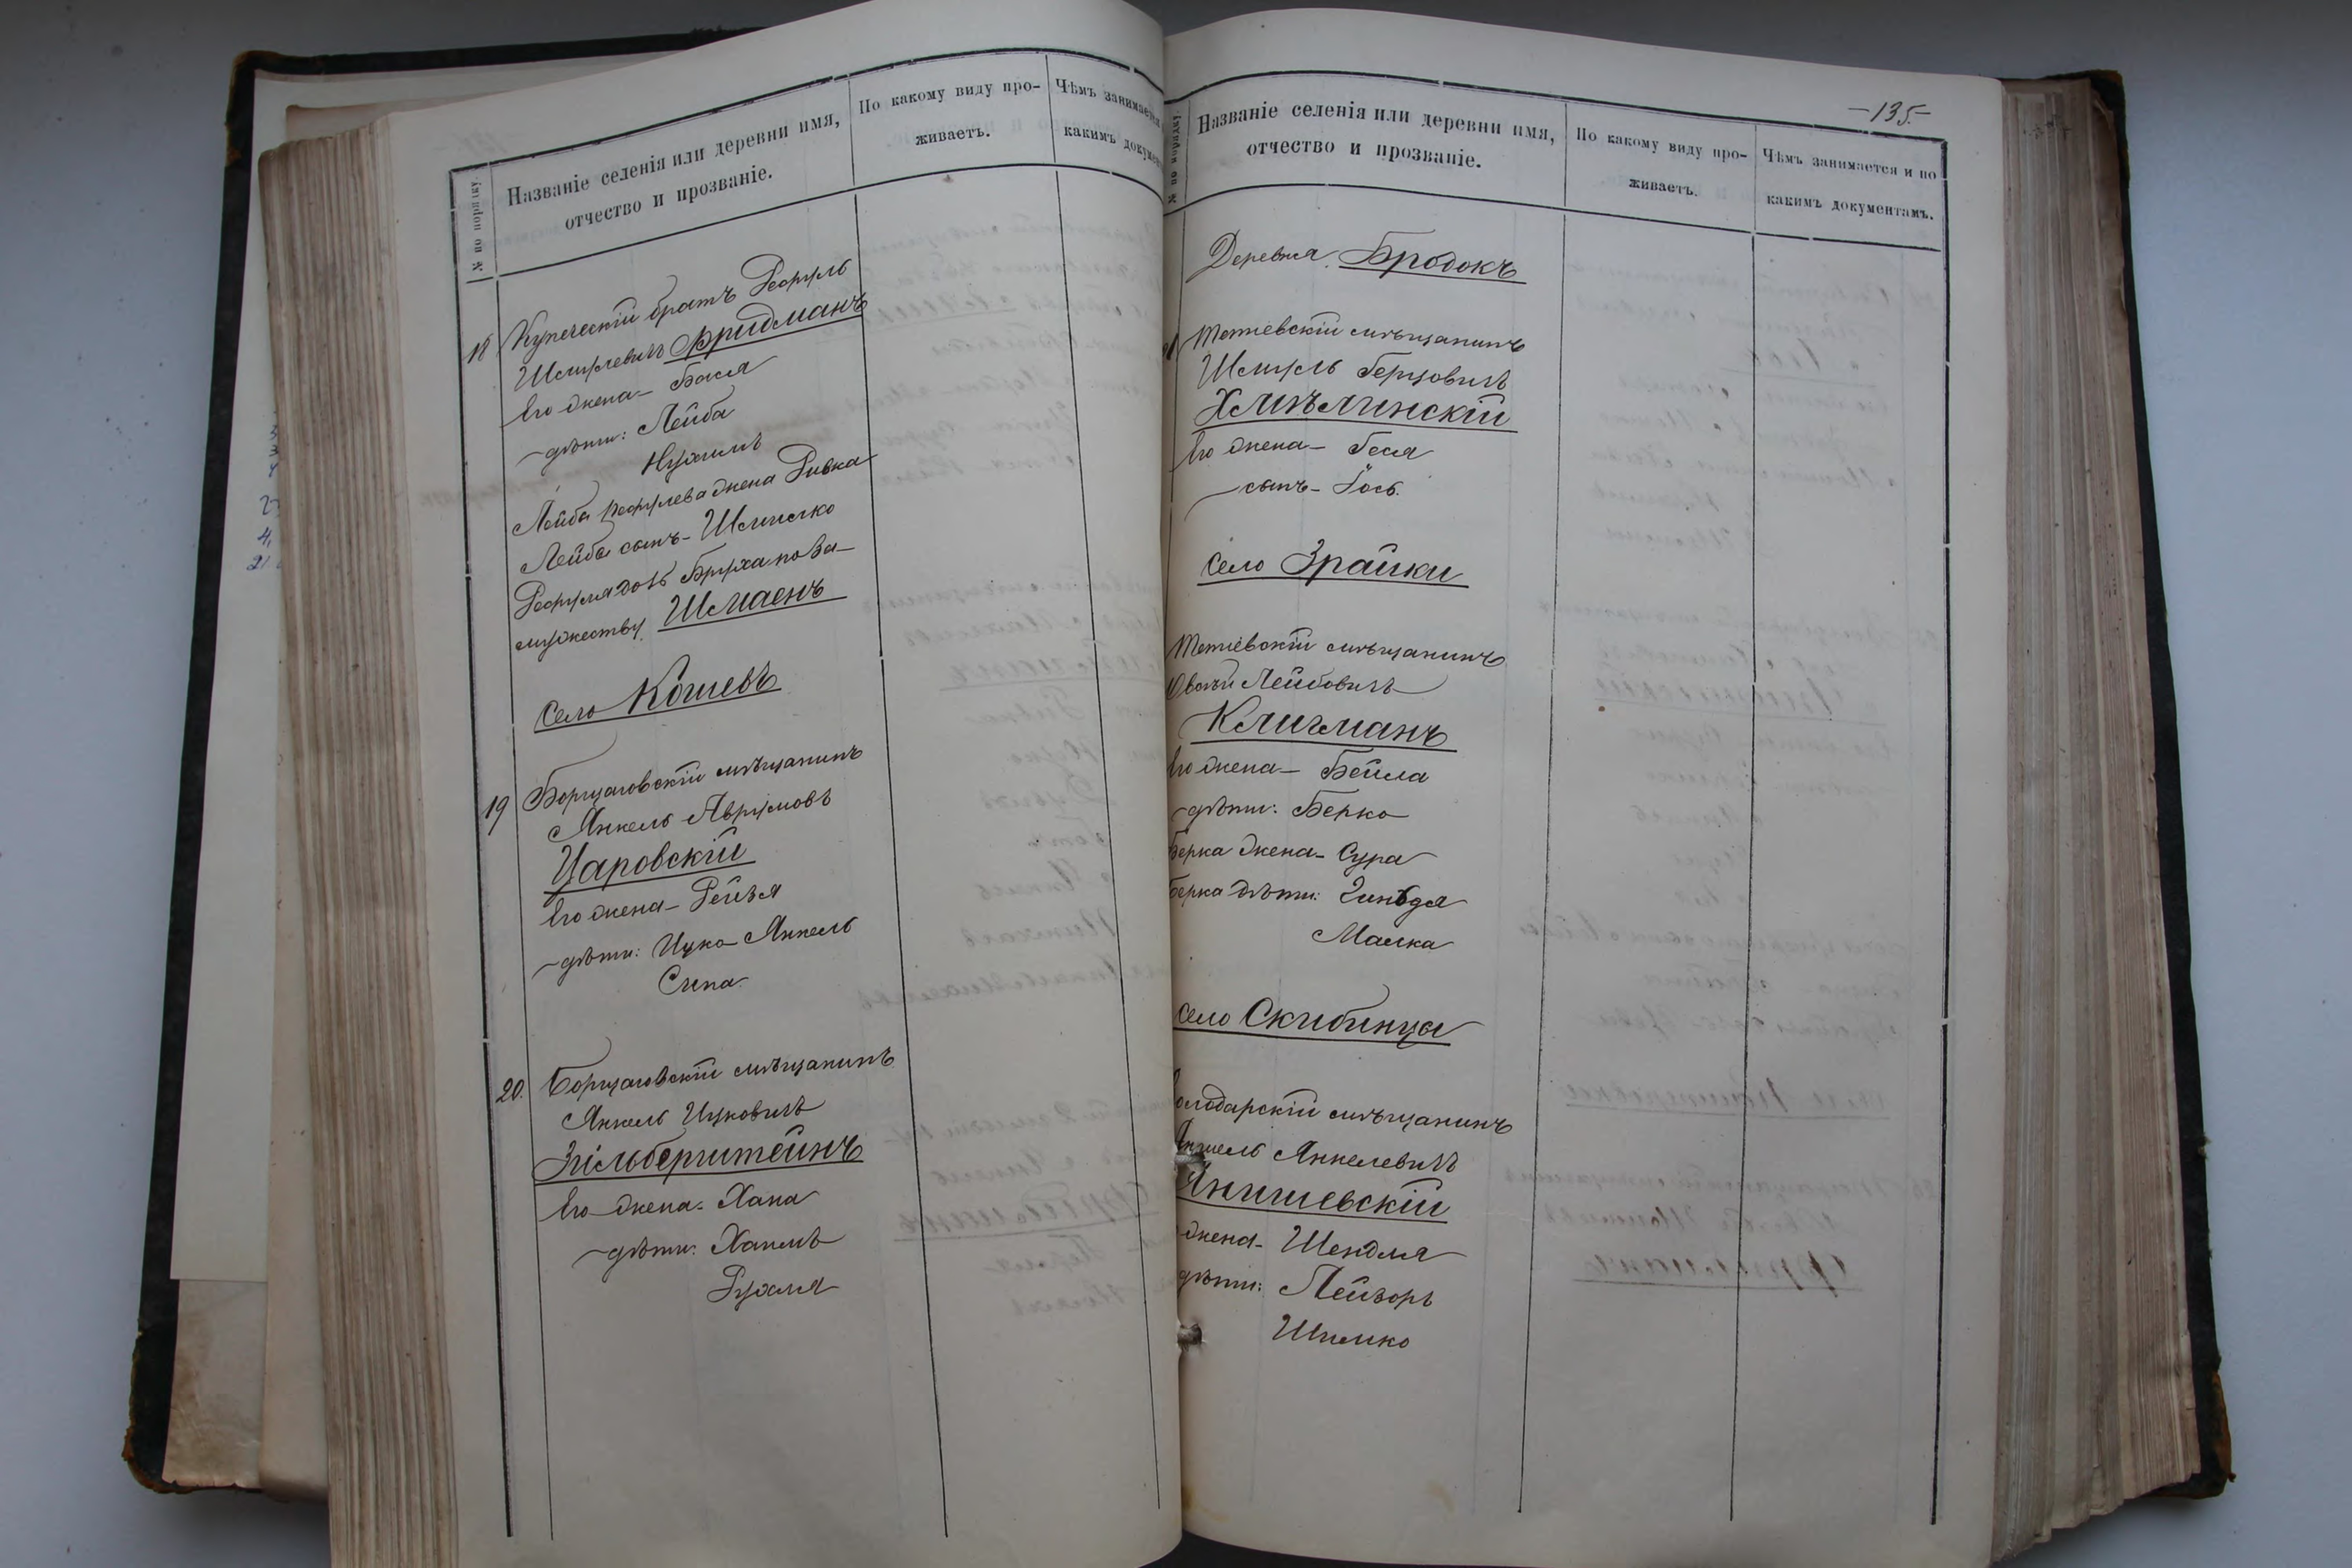 № по порядку.
Названіе селенія или деревни имя,
отчество и прозваніе.
По какому виду про-
живаетъ.
Чѣмъ занимается
какимъ докумен
18 Купеческій братъ Рефуль
Шмулевичъ Фридманъ
Его жена - Бася
дѣти: Лейба
Нухимъ
Лейбы Рефулева жена Ривка
Лейбы сынъ - Шлиомко
Рефуля дочь Бруха по за-
мужеству Шмаенъ
Село Кошевъ
19 Борщаговскій мѣщанинъ
Янкель Аврумовъ
Царовскій
Его жена - Рейзя
дѣти: Ицко Янкель
Сипа
20. Борщаговскій мѣщанинъ
Янкель Ицковичъ
Зильберштейнъ
Его жена - Хана
дѣти: Хаимъ
Рухля
- 135 -
№ по порядку
Названіе селенія или деревни имя,
отчество и прозваніе.
По какому виду про-
живаетъ.
Чѣмъ занимается и по
какимъ документамъ.
Деревня Бродокъ
Тетіевскій мѣщанинъ
Шмуль Герцовичъ
Хмѣлинскій
Его жена - Геся
сынъ - Іось
Село Зрайки
Тетіевскій мѣщанинъ
Лейбовичъ
Клигманъ
Его жена - Бейла
дѣти: Берко
Берка жена - Сура
Берка дѣти:
Малка
Село Скибинцы
олодарскій мѣщанинъ
Янкелевичъ
Янишевскій
жена - Шендля
дѣти: Лейзоръ
Шимко